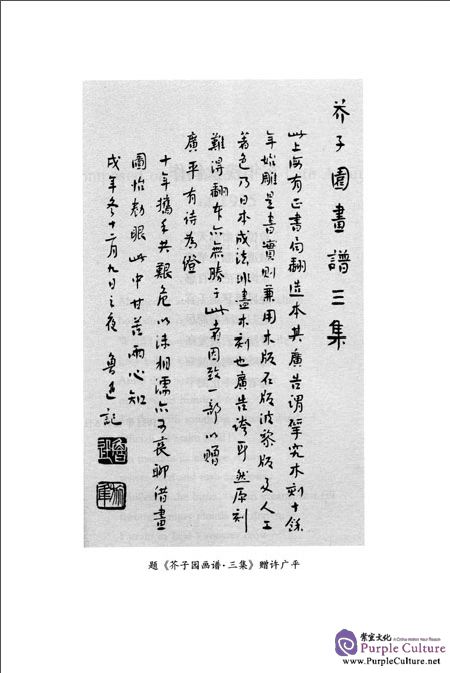 芥子園畫譜三集
此上海有正書局翻造本其廣告謂揅究木刻十餘
年始雕是書實則兼用木版石版波黎版及人工
著色乃日本成法非盡木刻也廣告誇耳然原刻
難得翻本亦無勝于此者因致一部以贈
廣平有詩為證
十年攜手共艱危以沫相濡亦可哀聊借畫
圖怡勌眼此中甘苦兩心知
戌年冬十二月九日之夜 魯迅記
魯迅
旅隼
题《芥子园画谱·三集》赠许广平
紫宣文化
Purple Culture
www.PurpleCulture.net